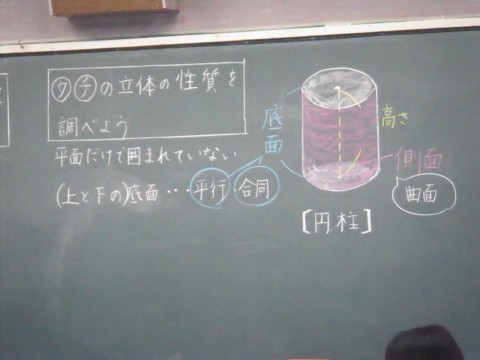 タ チ の立体の性質を
調べよう
平面だけで囲まれていない
(上と下の)底面・・・平行・合同
底面
高さ
側面
曲面
[円柱]